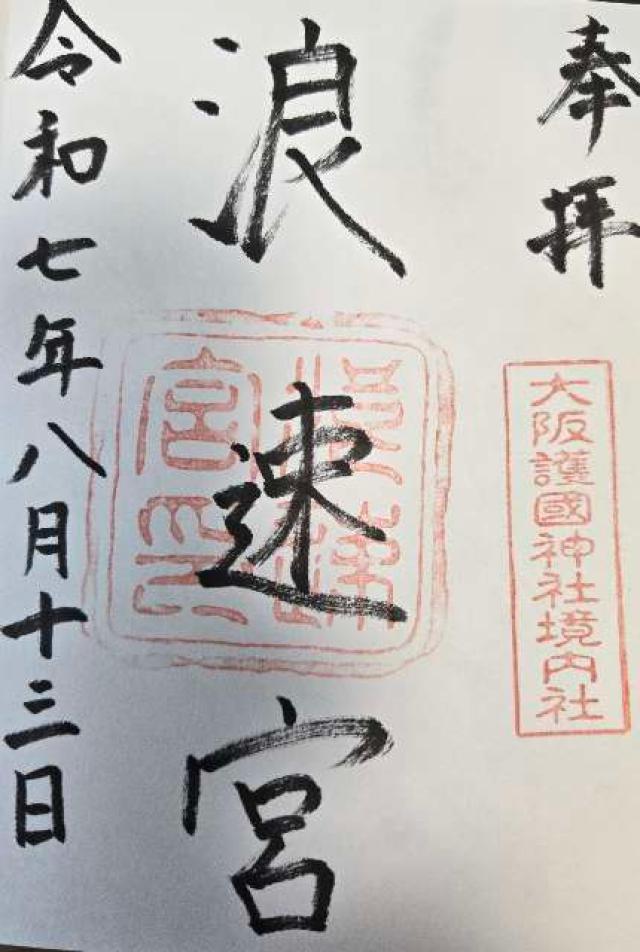 奉拝
大阪護國神社境内社
浪速宮
浪速宮印
令和七年八月十三日